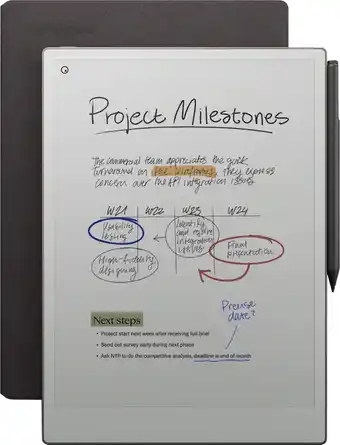 Project Milestones
The commercial team appreciates the quick
turnaround on the wireframes, they express
concern over the API integration issues
W21 W22 W23 W24
Usability
testing
Identify
and resolve
integration
issues
Final
presentation
High-fidelity
designing
Precise
date?
Next steps
• Project start next week after receiving full brief
• Send out survey early during next phase
• Ask NTP to do the competitive analysis, deadline is end of month